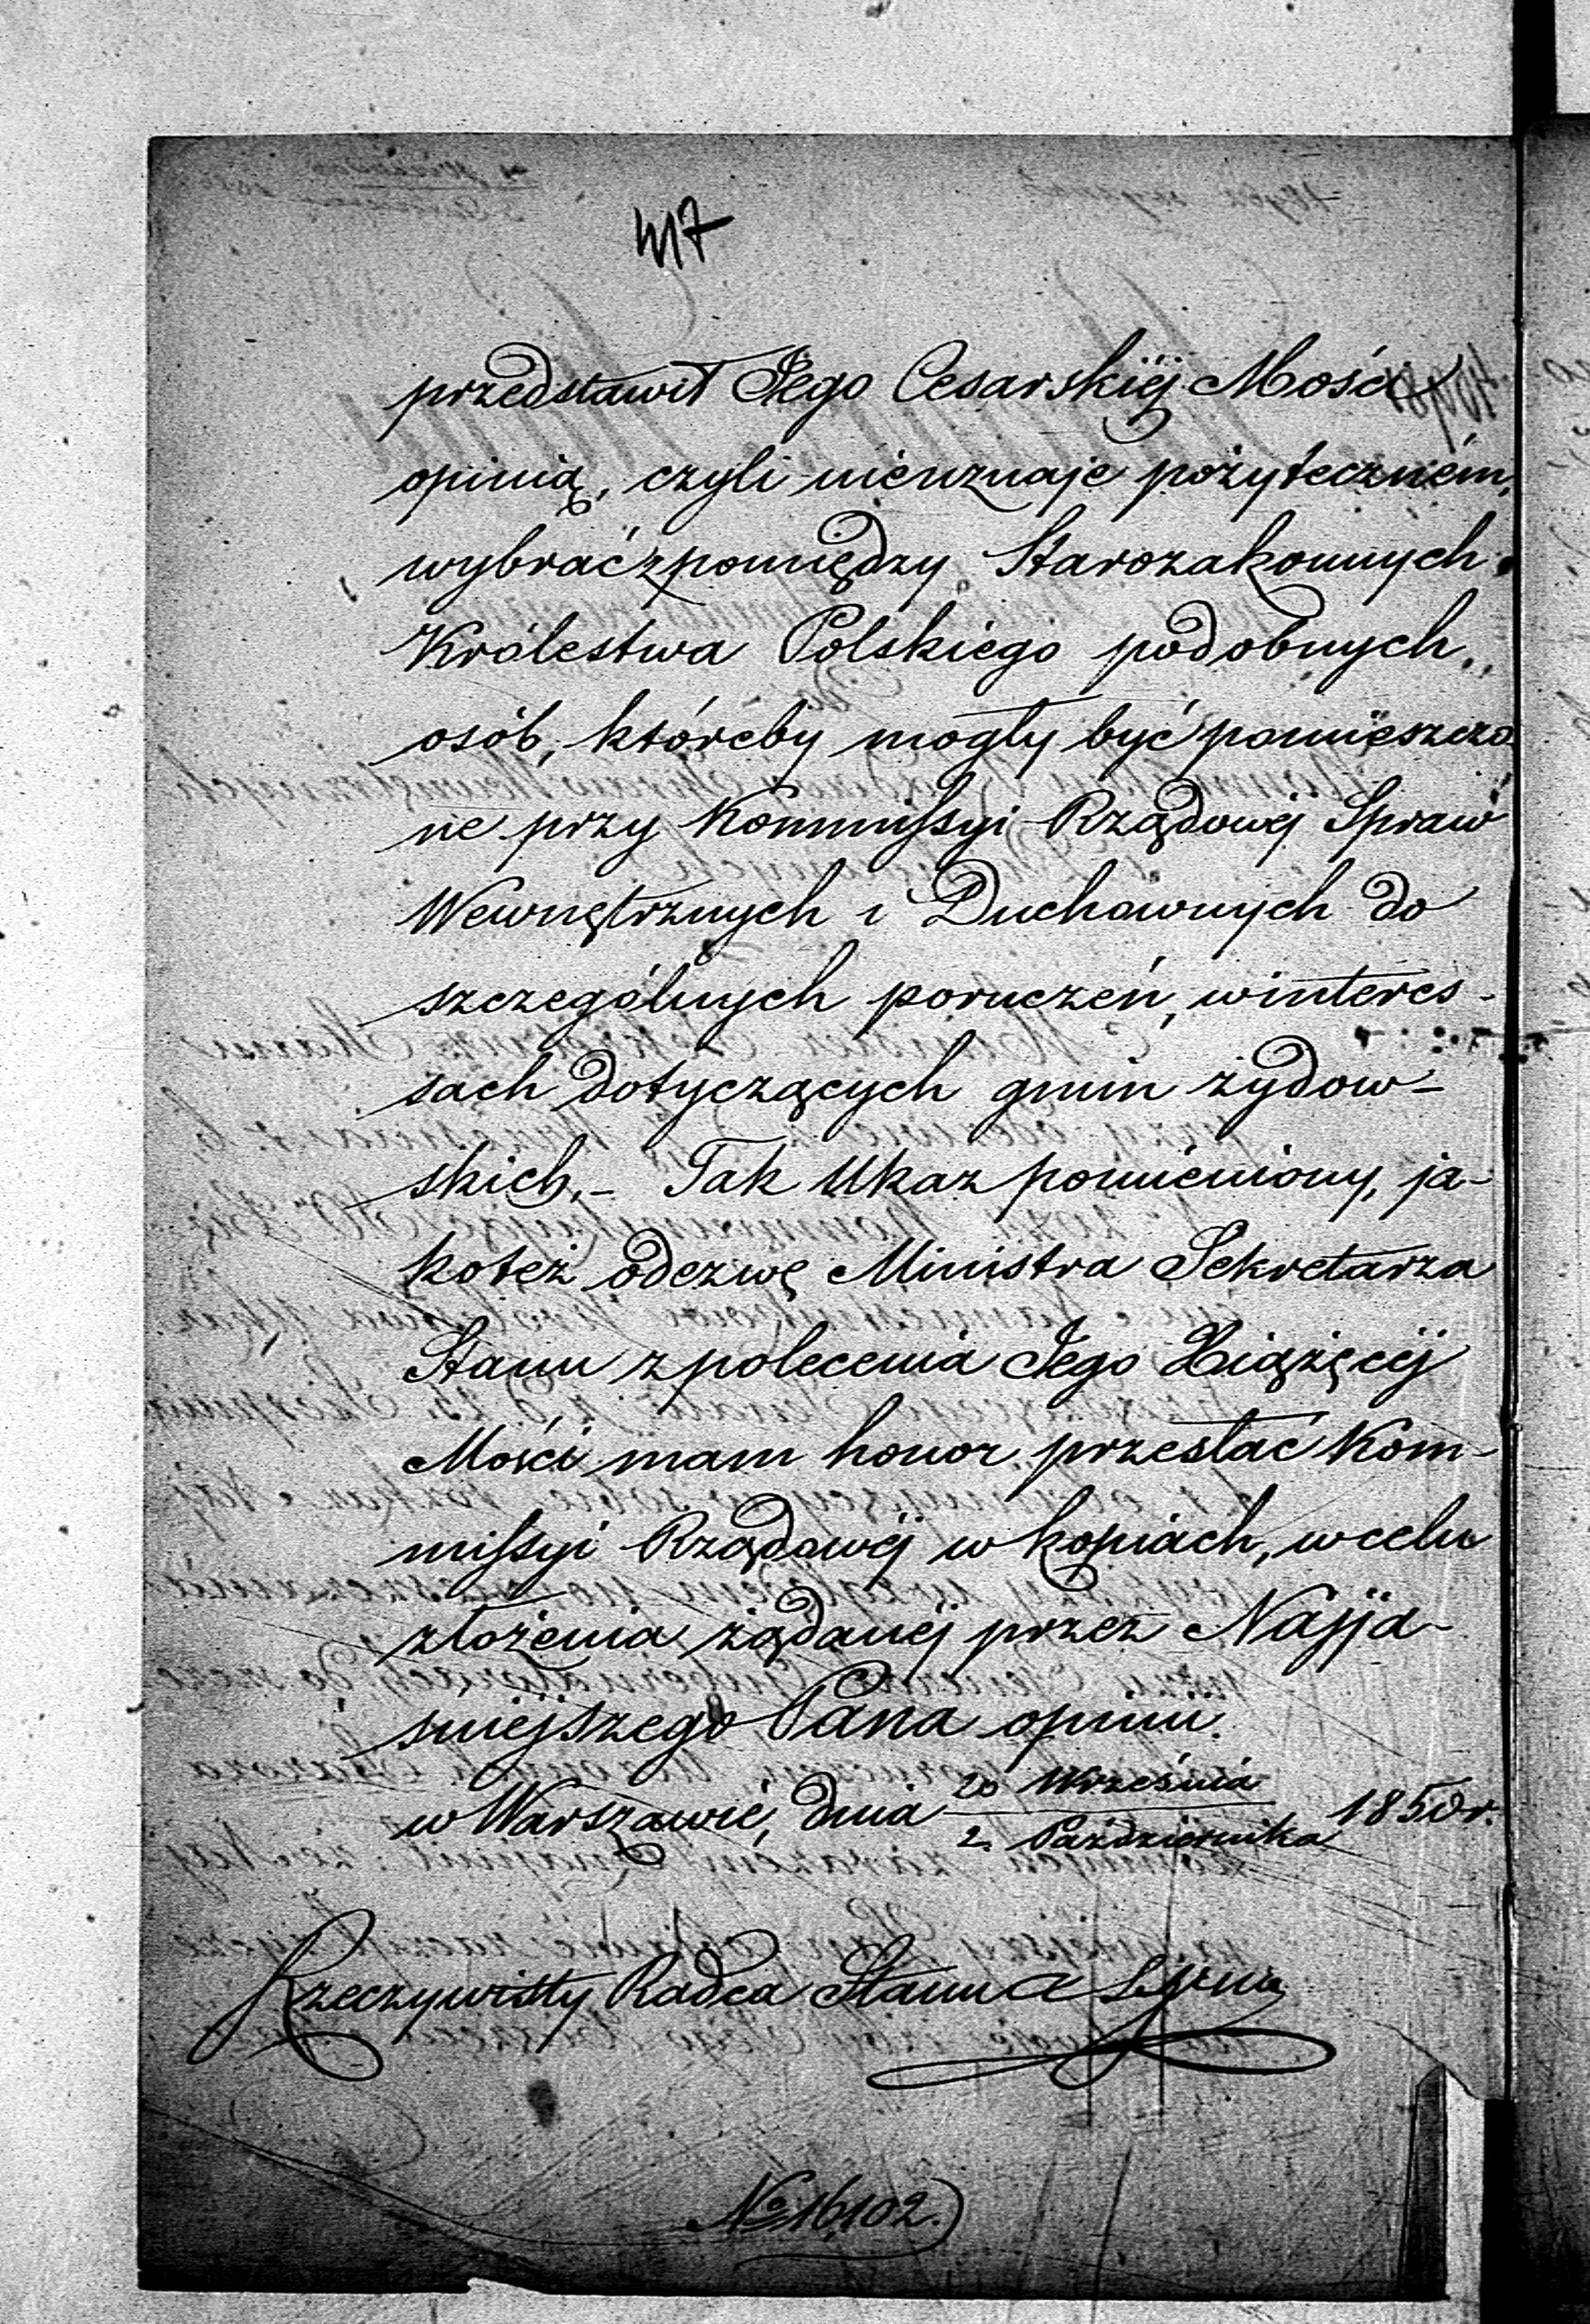 417
przedstawił Jego Cesarskiéj Mości
opinią, czyli nieuznaje pożyteczném,
wybrać zpomiędzy Starozakonnych
Królestwa Polskiego podobnych
osób, któreby mogły być pomieszczo
ne przy Kommissyi Rządowéj Spraw
Wewnętrznych i Duchownych do
szczególnych poruczeń, winteres-
sach dotyczących gmin żydow-
skich.- Tak Ukaz pomieniony, ja-
koteż odezwę Ministra Sekretarza
Stanu z polecenia Jego Xiążęcéj
Mości mam honor przesłać Kom-
missyi Rządowéj w kopiach, w celu
złożenia żądanéj przez Najja-
śniejszego Pana opinii.
w Warszawie, dnia 20 Września / 2. Października 1850 r.
Rzeczywisty Radca Stanu
№ 16,102.